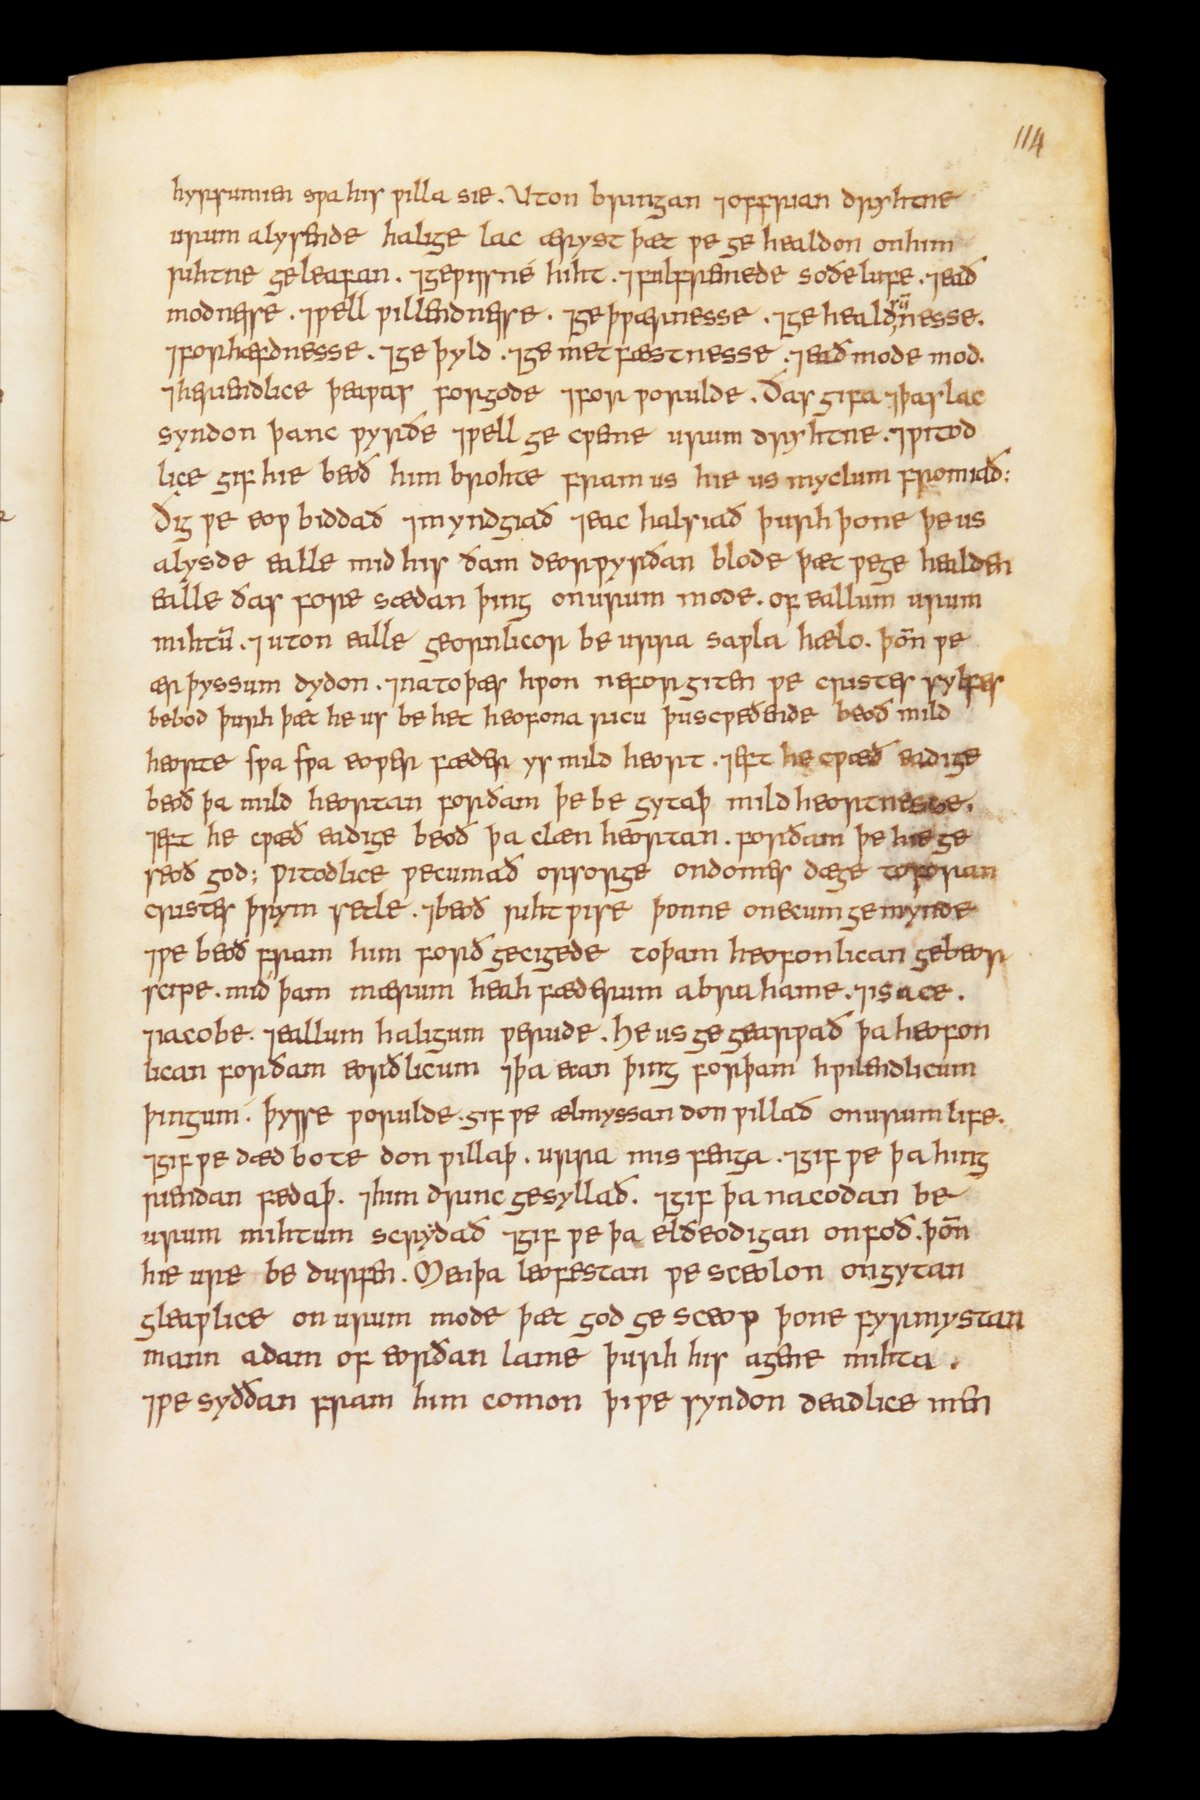 114
hyrsumien ƿa his ƿilla sie. Uton bringan ⁊offrian dryhtne
urum alysende halige lac æryst þæt ƿe ge healdon onhim
rihtne geleafan. ⁊geƿisne hiht. ⁊fulfremede soðe lufe. ⁊ead
modnesse. ⁊ƿell ƿillendnesse. ⁊ge þƿærnesse. ⁊ge healdsūnesse.
⁊forhæfdnesse. ⁊ge þyld. ⁊ge metfæstnesse. ⁊eaðmode mod.
⁊heriendlice þeaƿas forgode ⁊for ƿorulde. Ðas gifa ⁊þas lac
syndon þanc ƿyrðe ⁊ƿell ge cƿeme urum dryhtne. ⁊ƿitod
lice gif hie beoð him brohte fram us hie us myclum fromiað:
Ðig ƿe eoƿ biddað ⁊myndgiað ⁊eac halsiað þurh þone þe us
alysde ealle mid his ðam deorƿyrðan blode þæt ƿege healden
ealle ðas fore sædan þing onurum mode. of eallum urum
mihtū. ⁊ uton ealle geornlicor be urra saƿla hælo. þoñ ƿe
ær þyssum dydon. ⁊natoþæs hƿon neforgiten ƿe cristes sylfes
bebod þurh þæt he us be het heofona ricu þuscƿeðende beoð mild
heorte sƿa sƿa eoƿer fæder ys mild heort. ⁊eft he cƿæð eadige
beoð þa mild heortan forðam þe be gytaþ mildheortnesse.
⁊eft he cƿæð eadige beoð þa clæn heortan. forðam þe hie ge
seoð god; Ƿitodlice ƿecumað orsorge ondomes dæge toforan
cristes þrym setle. ⁊beoð riht ƿise þonne onecum gemynde
⁊ƿe beoð fram him forð gecigede toþam heofonlican gebeor
scipe. mid þam mærum heah fæderum abrahame. ⁊isace.
⁊iacobe. ⁊eallum haligum ƿerude. He us ge gearƿað þa heofon
lican forðam eorðlicum ⁊þa ecan þing forþam hƿilendlicum
þingum. þysse ƿorulde. gif ƿe ælmyssan don ƿillað onurum life.
⁊gif ƿe dædbote don ƿillaþ. urra mis fenga. ⁊gif ƿe þa hing
riendan fedaþ. ⁊him drinc gesyllað. ⁊gif þa nacodan be
urum mihtum scrydað ⁊gif ƿe þa elðeodigan onfoð. þoñ
hie ure be durfen. Men þa leofestan ƿe sceolon ongytan
gleaƿlice on urum mode þæt god ge sceop þone fyrmystan
mann adam of eorðan lame þurh his agene mihta.
⁊ƿe syððan fram him comon þi ƿe syndon deadlice men